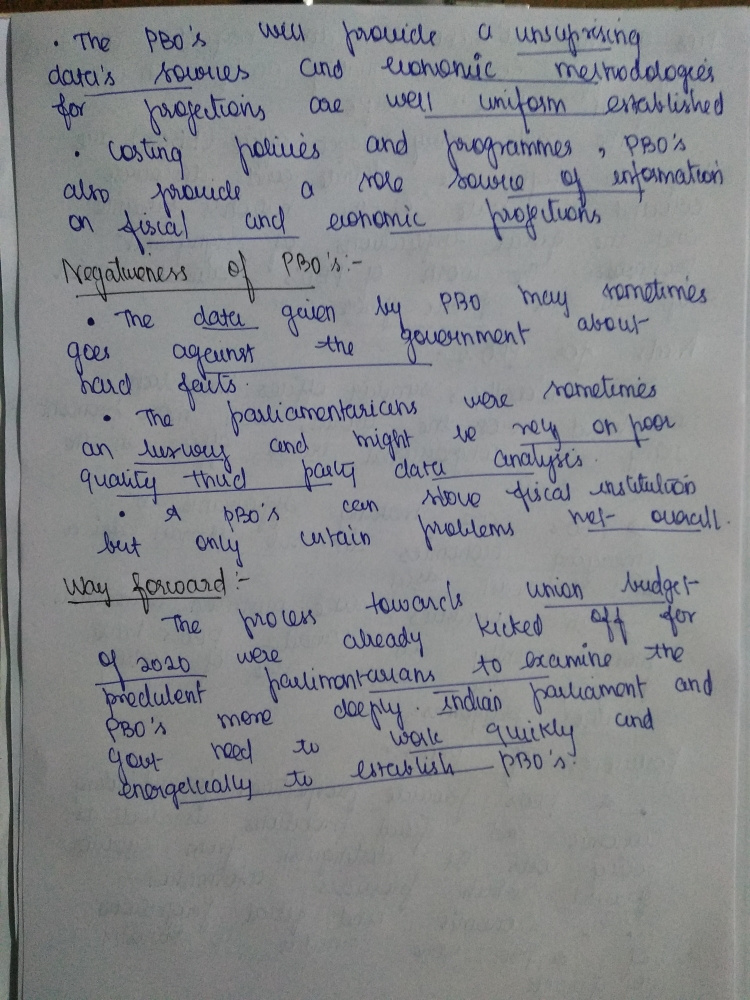 • The PBO's will provide a unsuprising
data's sources and economic methodologies
for projections are well uniform established
• Costing policies and programmes, PBO's
also provide a sole source of information
on fiscal and economic projections
Negativeness of PBO's:-
• The data given by PBO may sometimes
goes against the government about
hard facts.
• The parliamentaricans were sometimes
an luxuory and might be rely on poor
quality third party data analysis
• A PBO's can solve fiscal institution
but only certain problems not overall.
Way forward:-
The process towards union budget
of 2020 were already kicked off for
predulent parlimontarians to examine the
PBO's more deeply. Indian parliament and
govt need to work quickly and
energetically to establish PBO's.